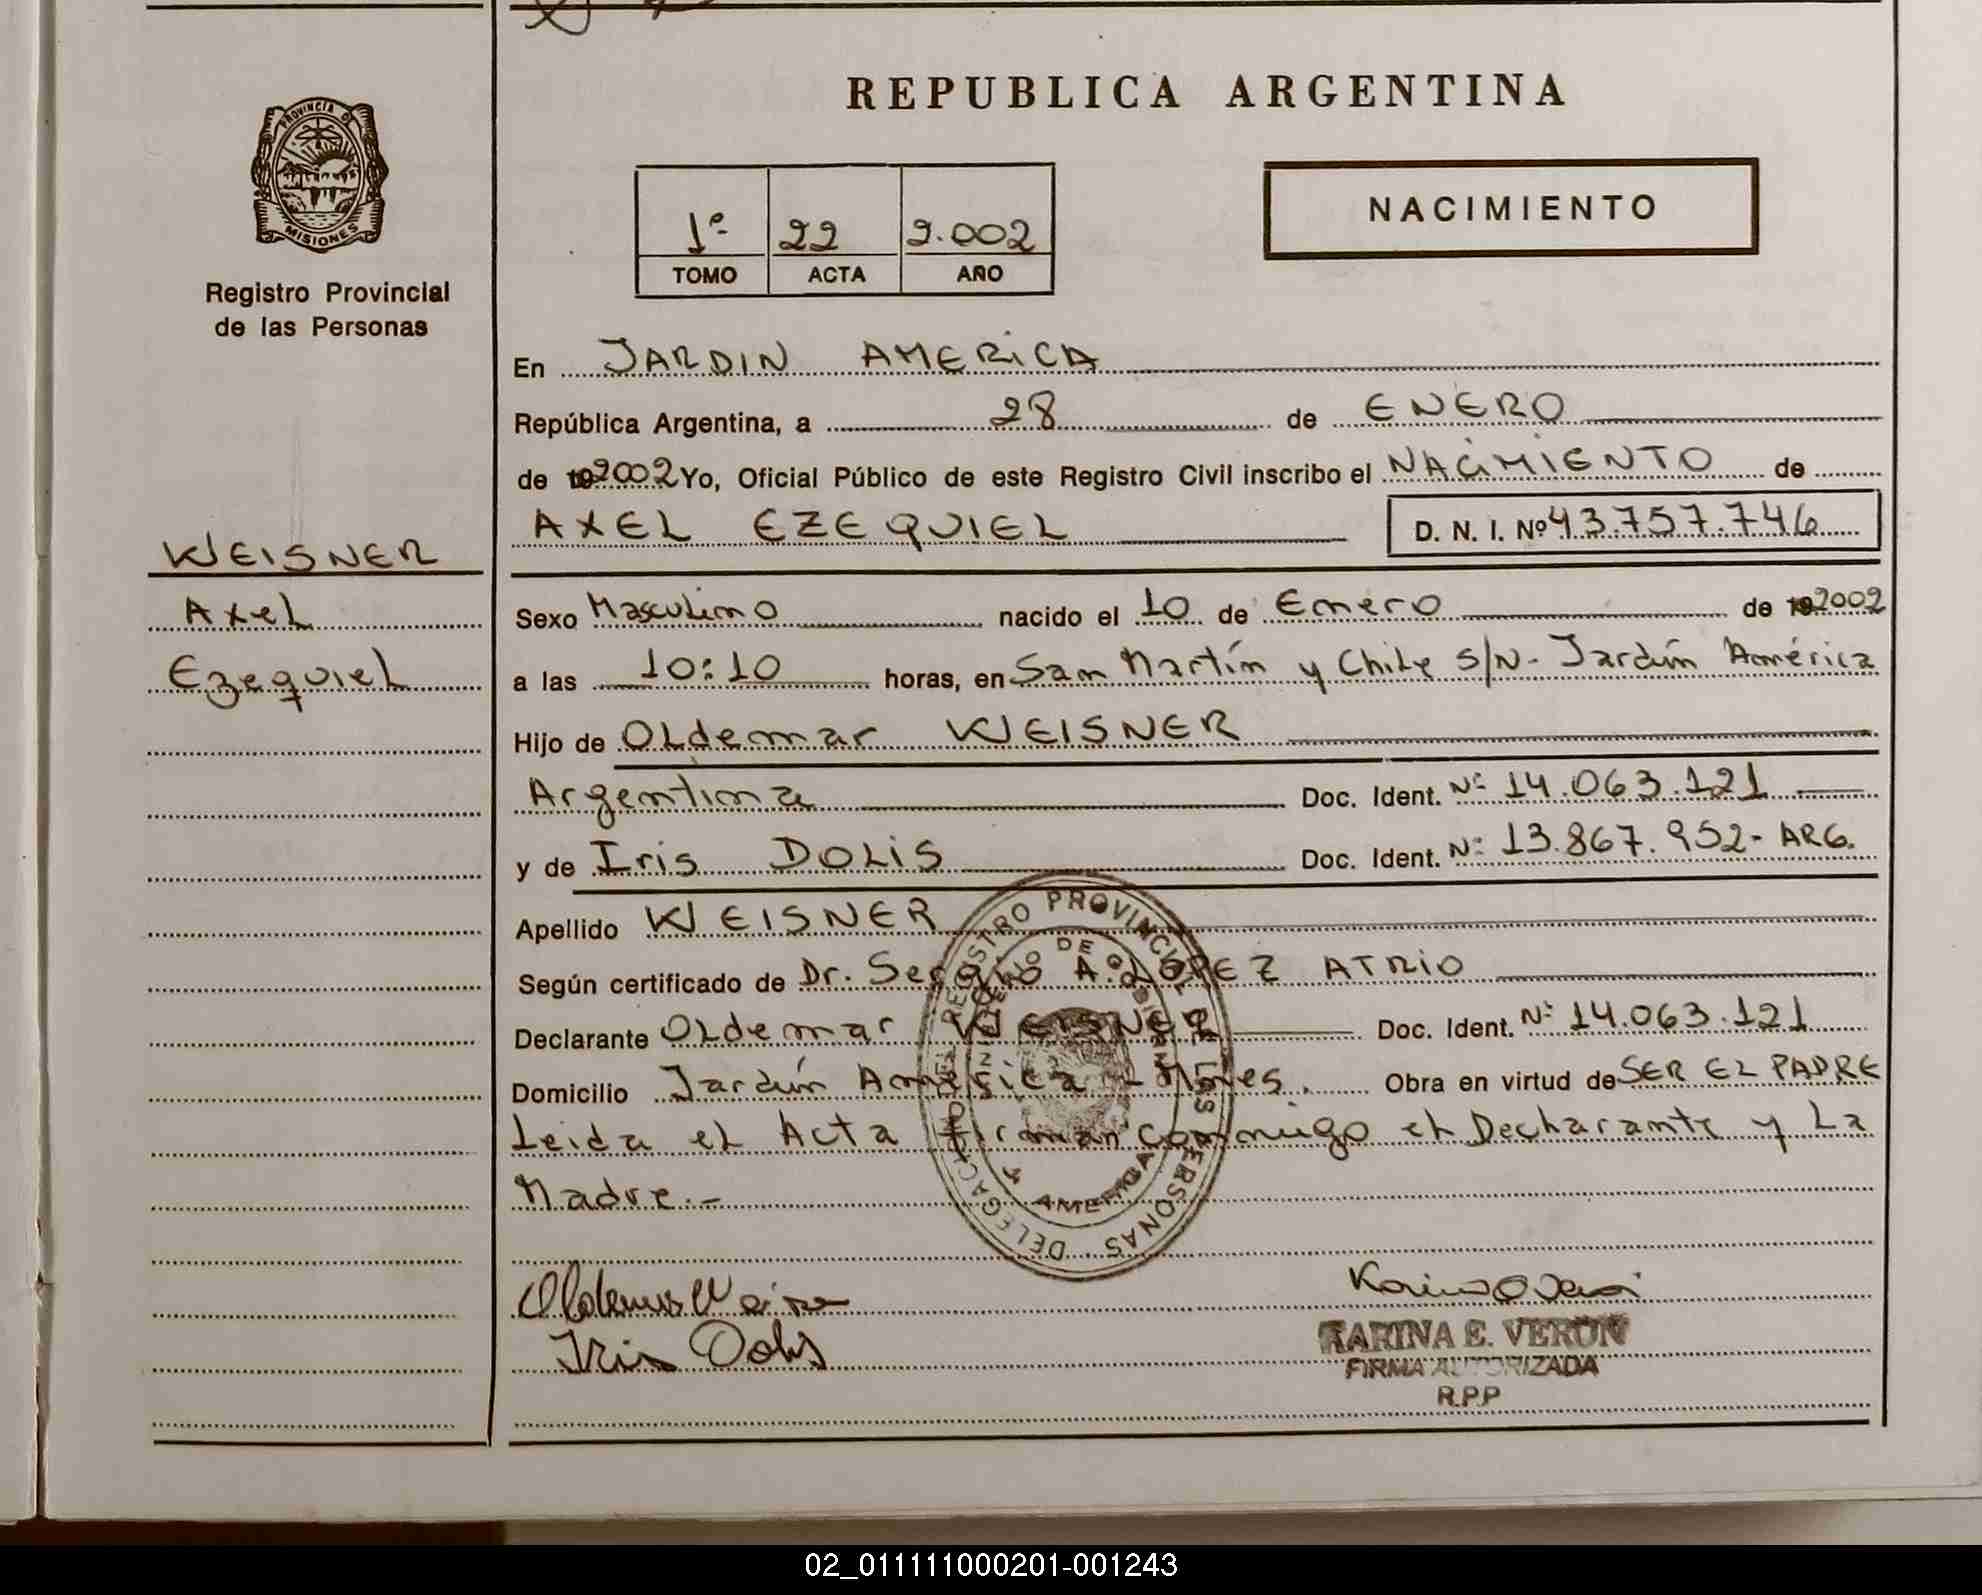 REPUBLICA ARGENTINA
PROVINCIA DE MISIONES
Registro Provincial
de las Personas
1º 22 2.002
TOMO ACTA AÑO
NACIMIENTO
En JARDIN AMERICA
República Argentina, a 28 de ENERO
de 192002 Yo, Oficial Público de este Registro Civil inscribo el NACIMIENTO de
AXEL EZEQUIEL D. N. I. Nº 43.757.746
WEISNER
Axel
Ezequiel
Sexo Masculino nacido el 10 de Enero de 192002
a las 10:10 horas, en San Martín y Chile S/N- Jardín América
Hijo de Oldemar WEISNER
Argentina Doc. Ident. Nº 14.063.121
y de Iris DOLIS Doc. Ident. Nº 13.867.952- ARG.
Apellido WEISNER
Según certificado de Dr. Sergio A. LOPEZ ATRIO
Declarante Oldemar WEISNER Doc. Ident. Nº 14.063.121
Domicilio Jardín América - Mnes. Obra en virtud de SER EL PADRE
Leida el Acta firman conmigo el Declarante y La
Madre.-
REGISTRO PROVINCIAL DE LAS PERSONAS DELEGACION
AMERICA
Iris Dolis
KARINA E. VERON
FIRMA AUTORIZADA
R.P.P
02_011111000201-001243